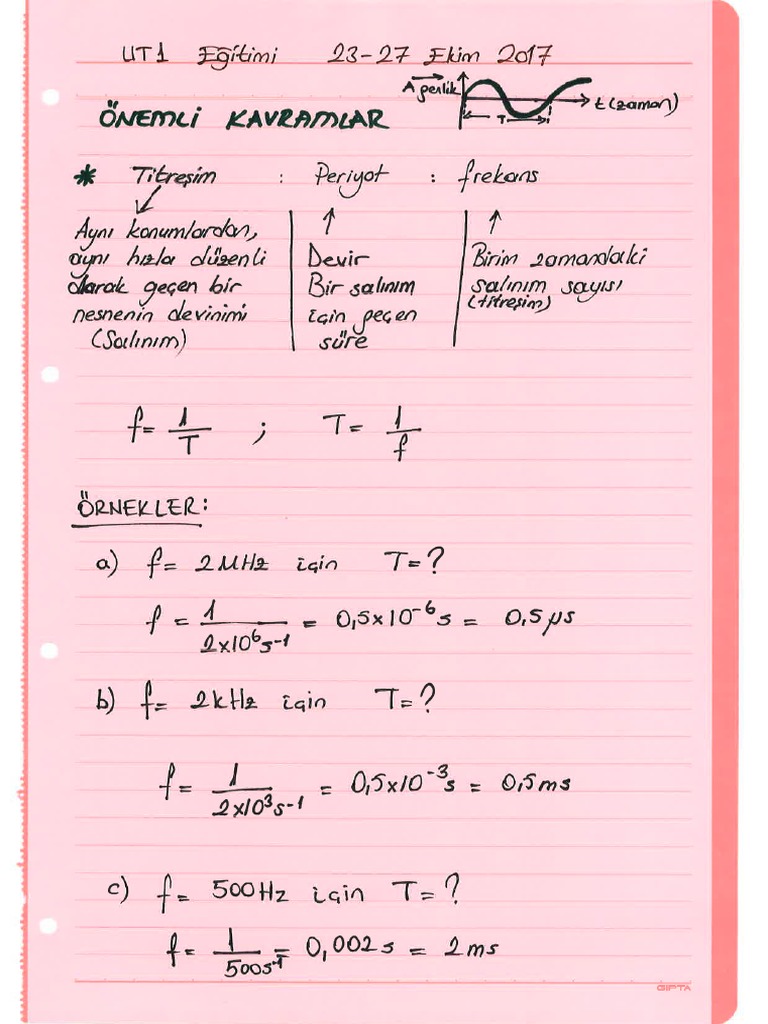 UT1 Eğitimi 23-27 Ekim 2017
A genlik
t (zaman)
T
ÖNEMLİ KAVRAMLAR
* Titreşim : Periyot : frekans
Aynı konumlardan,
aynı hızla düzenli
olarak geçen bir
nesnenin devinimi
(Salınım)
Devir
Bir salınım
için geçen
süre
Birim zamandaki
salınım sayısı
(titreşim)
f = 1/T ; T = 1/f
ÖRNEKLER:
a) f = 2 MHz için T = ?
f = 1/2x10⁶s⁻¹ = 0,5x10⁻⁶s = 0,5 µs
b) f = 2kHz için T = ?
f = 1/2x10³s⁻¹ = 0,5x10⁻³s = 0,5 ms
c) f = 500Hz için T = ?
f = 1/500s⁻¹ = 0,002 s = 2 ms
GIPTA